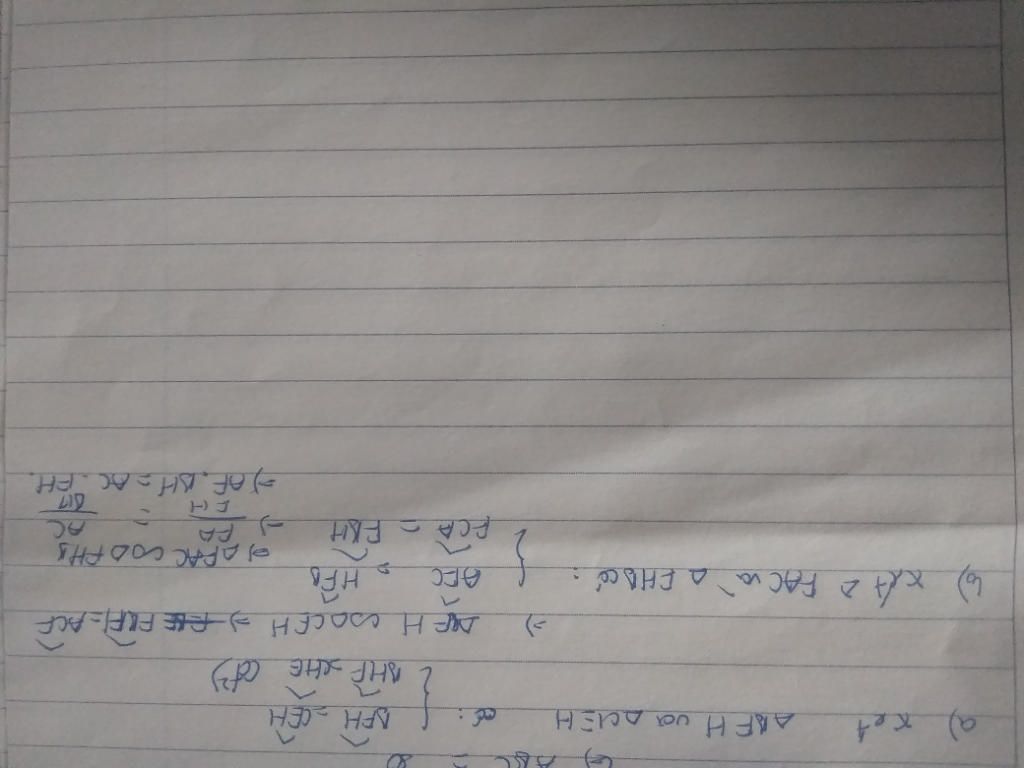 a) Xét ΔBFH và ΔCEH có: { BFH = CEH
BHF = CHE (đ²)
=> ΔBFH ∽ ΔCEH => FBH = ACF
b) Xét Δ FAC và Δ FHB có: { AFC = HFB
FCA = FBH
=> ΔFAC ∽ ΔFHB
=> FA/FH = AC/BH
=> AF.BH = AC.FH.